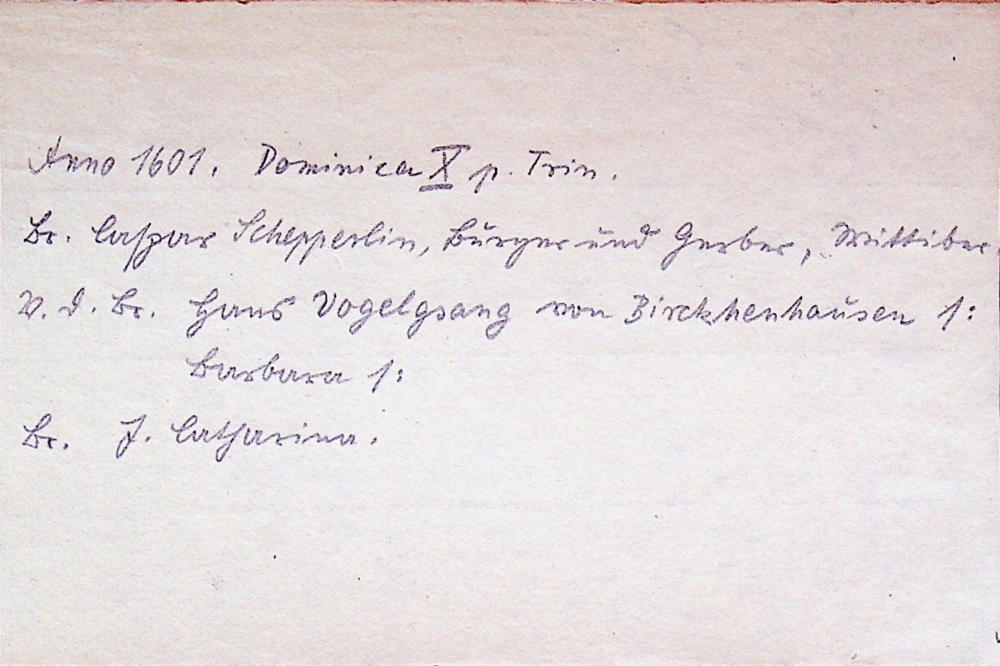 Anno 1601. Dominica X p. Trin.
Br. Caspar Schepperlin, Bürger und Gerber, Wittiber.
V. d. Br. Hans Vogelgsang von Birckhenhausen s:
Barbara s:
Br. J. Catharina.